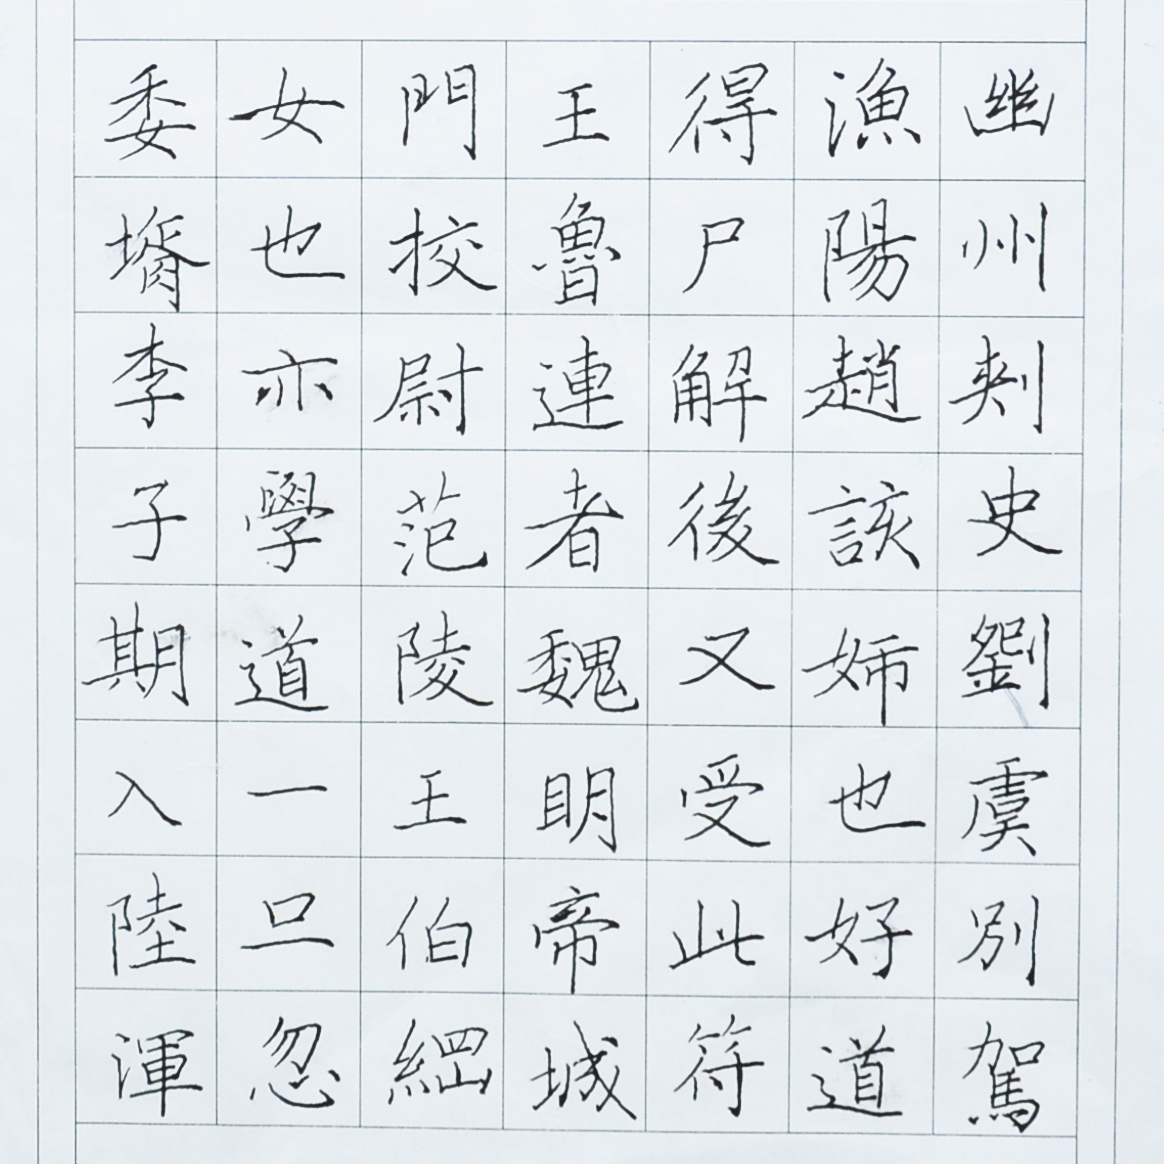 幽州刾史劉虞別駕
漁陽趙該姉也好道
得尸解後又受此符
王魯連者魏明帝城
門挍尉范陵王伯綱女也亦學道一旦忽
委壻李子期入陸渾